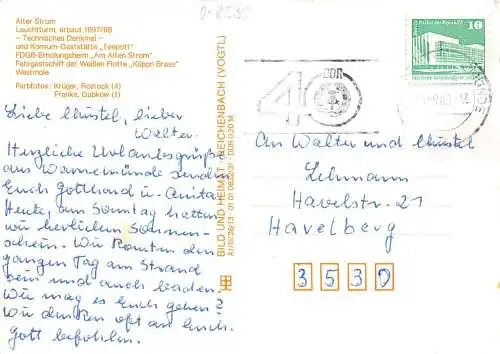 D-2530
Alter Strom
Leuchtturm, erbaut 1897/98
- Technisches Denkmal -
und Konsum-Gaststätte „Teepott"
FDGB-Erholungsheim „Am Alten Strom"
Fahrgastschiff der Weißen Flotte „Käppn Brass"
Westmole
Farbfotos: Krüger, Rostock (4)
Franke, Gubkow (1)
Liebe Christel, lieber
Walter.
Herzliche Urlaubsgrüße
aus Warnemünde senden
Euch Gotthard u. Anita.
Heute, am Sonntag hatten
wir herrlichen Sonnen-
schein. Wir konnten den
ganzen Tag am Strand
sein und auch baden.
Wie mag es Euch gehen?
Wir denken oft an Euch.
Gott befohlen.
BILD UND HEIMAT REICHENBACH (VOGTL)
DDR 0,20 M
40
DDR
10
An Walter und Christel
Lehmann
Havelstr. 21
Havelberg
3530